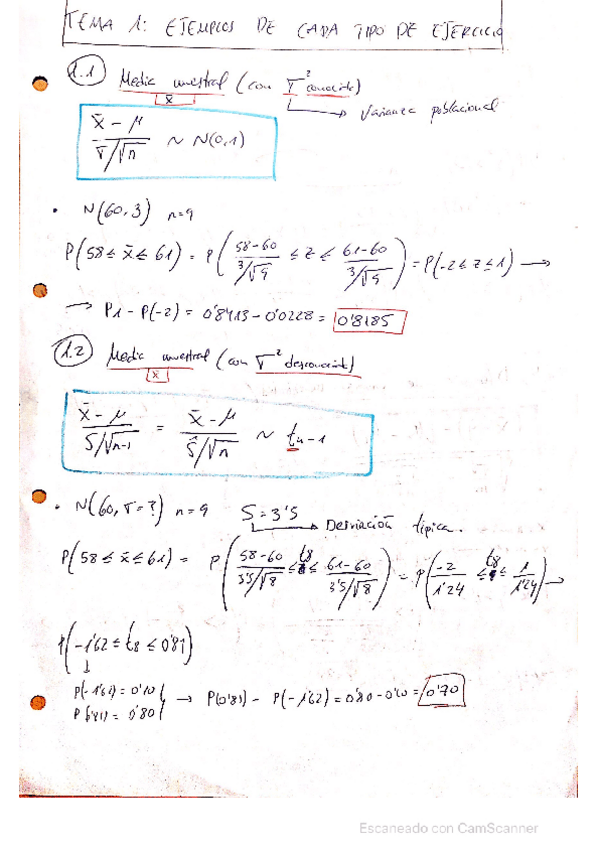 TEMA 1: EJEMPLOS DE CADA TIPO DE EJERCICIO
1.1 Media muestral (con σ² conocida)
x̄
→ Varianza poblacional
(x̄ - μ) / (σ/√n) ~ N(0,1)
• N(60,3) n=9
P(58 ≤ x̄ ≤ 61) = P((58-60)/(3/√9) ≤ z ≤ (61-60)/(3/√9)) = P(-2 ≤ z ≤ 1) →
→ P1 - P(-2) = 0'8413 - 0'0228 = 0'8185
1.2 Media muestral (con σ² desconocida)
x̄
(x̄ - μ) / (S/√n-1) = (x̄ - μ) / (Ŝ/√n) ~ tn-1
• N(60, σ=?) n=9 S=3'5
→ Desviación típica.
P(58 ≤ x̄ ≤ 61) = P((58-60)/(3'5/√8) ≤ t8 ≤ (61-60)/(3'5/√8)) = P(-2/1'24 ≤ t8 ≤ 1/1'24) →
P(-1'62 ≤ t8 ≤ 0'81)
↓
P(-1'62) = 0'10
P(0'81) = 0'80
→ P(0'81) - P(-1'62) = 0'80 - 0'10 = 0'70
Escaneado con CamScanner